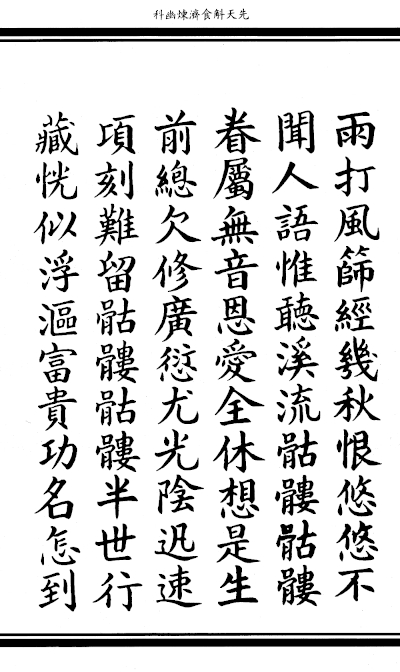 先天斛食濟煉幽科
雨打風篩經幾秋恨悠悠不
聞人語惟聽溪流骷髏骷髏
眷屬無音恩愛全休想是生
前總欠修廣愆尤光陰迅速
項刻難留骷髏骷髏半世行
藏恍似浮漚富貴功名怎到